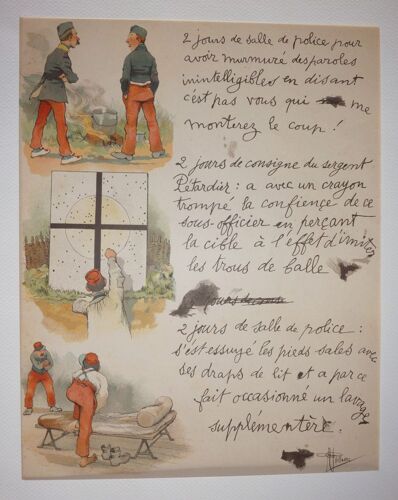 2 jours de salle de police pour
avoir murmuré des paroles
inintelligibles en disant
c'est pas vous qui me
monterez le coup !
2 jours de consigne du sergent
Pétardier : a avec un crayon
trompé la confience de ce
sous-officier en perçant
la cible à l'effet d'imiter
les trous de balle
2 jours de salle de police :
s'est essuyé les pieds sales avec
ses draps de lit et a par ce
fait occasionné un lavage
supplémentère.